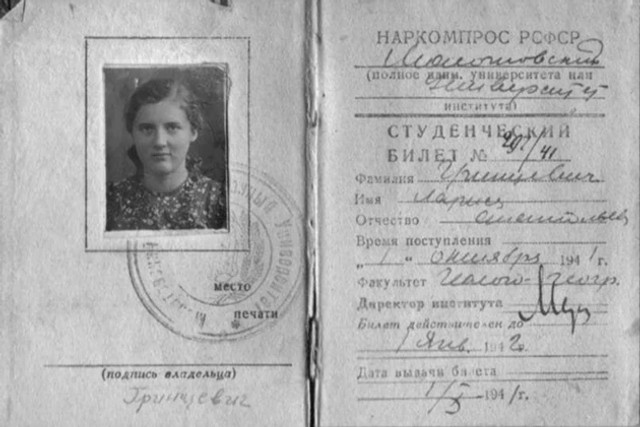 место
печати
(подпись владельца)
Гринцевич
НАРКОМПРОС РСФСР
(полное наим. университета или
Университет
института)
СТУДЕНЧЕСКИЙ
БИЛЕТ № 297/41
Фамилия Гринцевич
Имя Лариса
Отчество
Время поступления
„ 1 " октября 1941 г.
Факультет Геолого-Геогр.
Директор института
Билет действителен до
1 Янв. 1942 г.
Дата выдачи билета
1/X 1941 г.